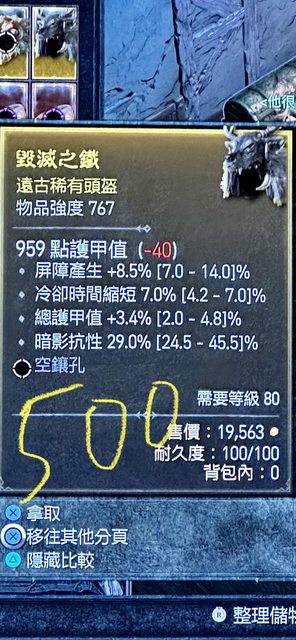 <他很
毀滅之鐵
遠古稀有頭盔
物品強度 767
959 點護甲值 (-40)
屏障產生 +8.5% [7.0 - 14.0]%
冷卻時間縮短 7.0% [4.2 - 7.0]%
總護甲值 +3.4% [2.0 - 4.8]%
暗影抗性 29.0% [24.5 - 45.5]%
空鑲孔
500
需要等級 80
售價：19,563
耐久度：100/100
背包內：0
拿取
移往其他分頁
隱藏比較
R 整理儲物